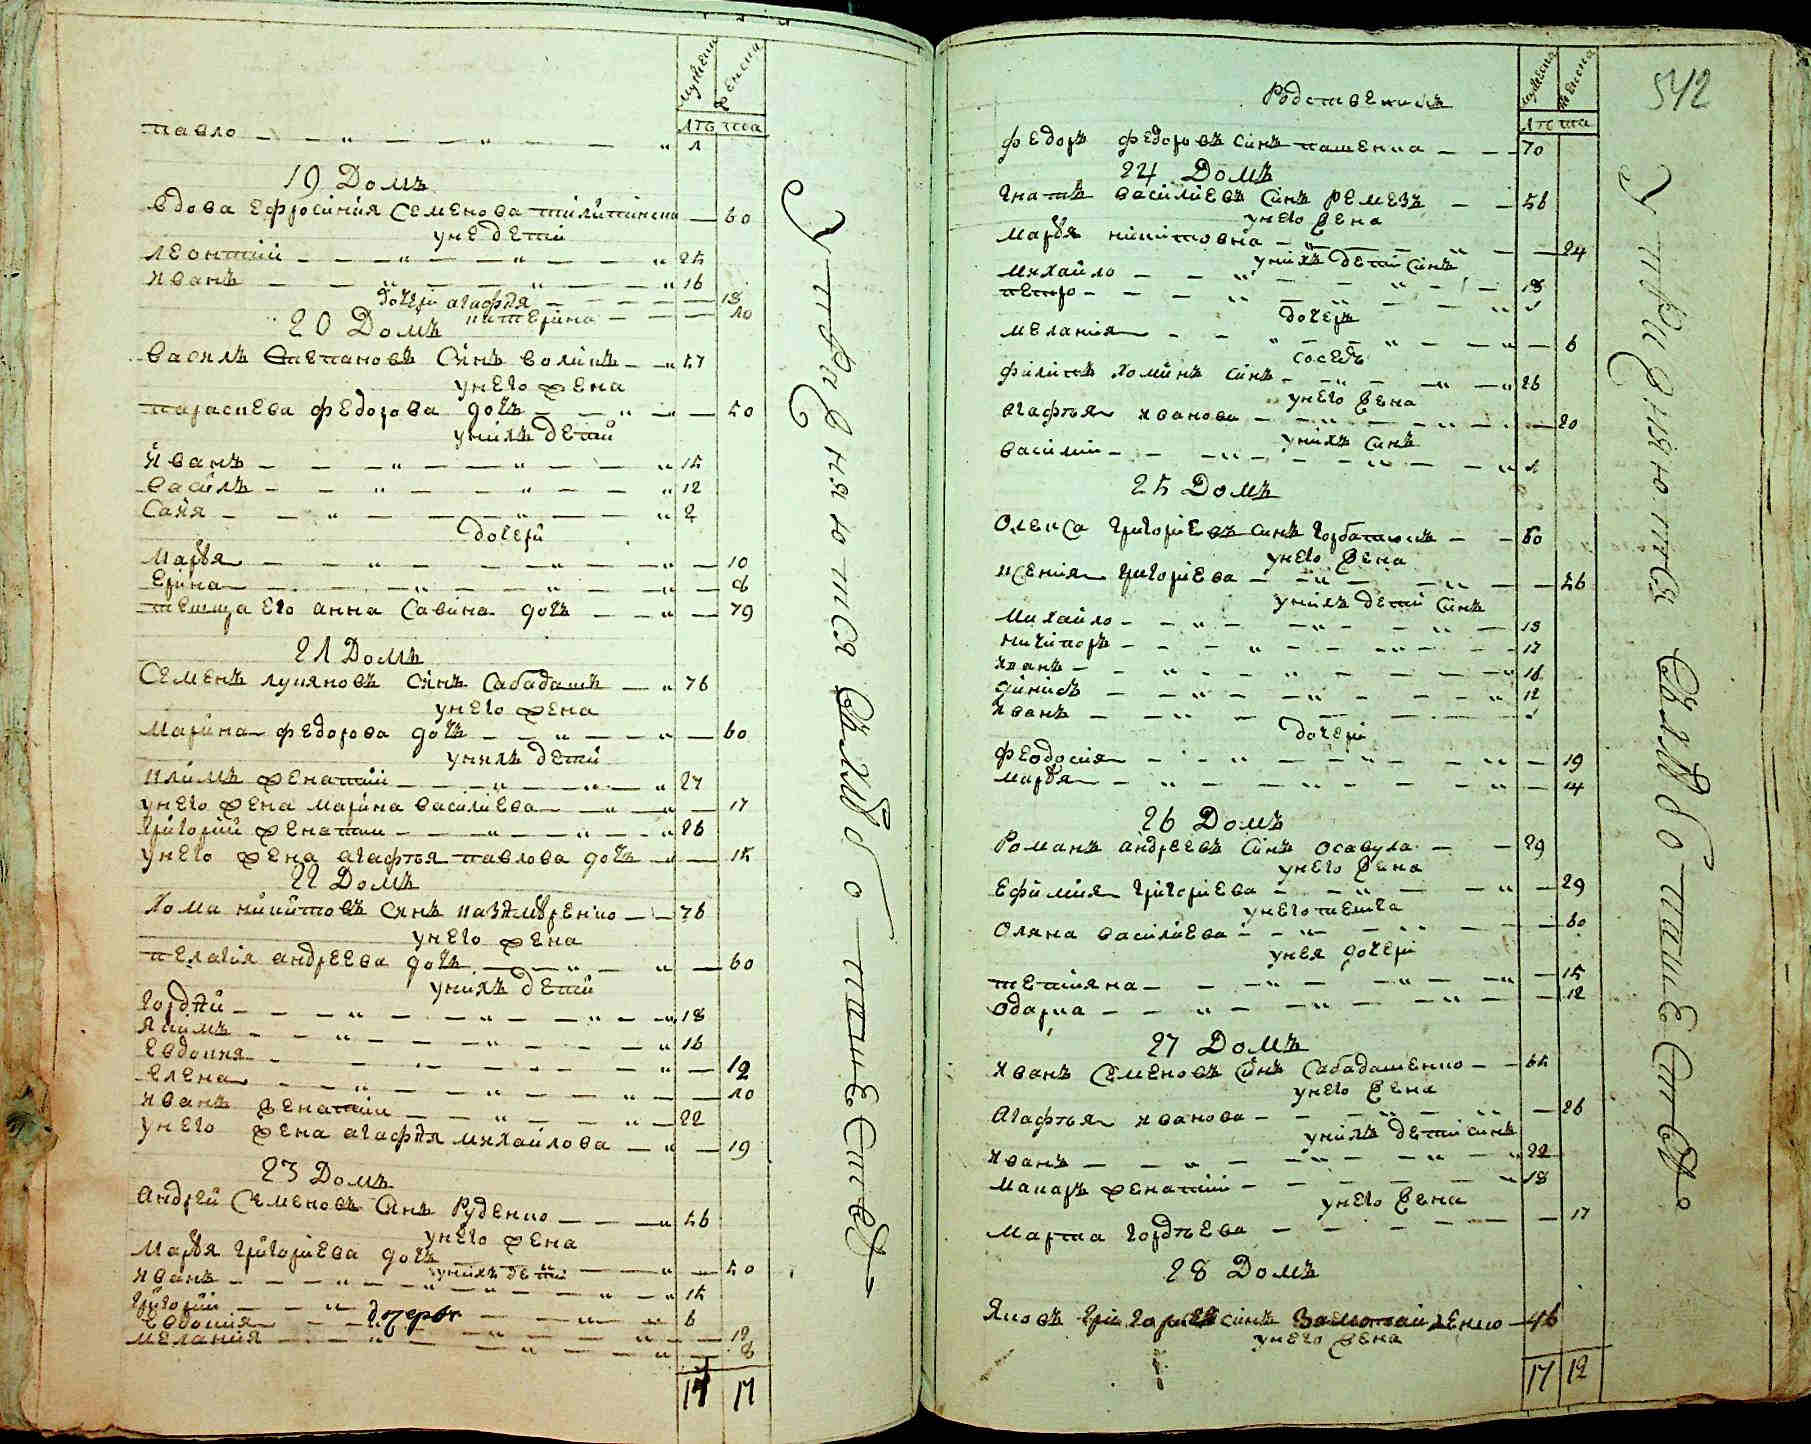 мужеска женска
лѣ та
павло 1
19 Домъ
вдова Ефросиния Семенова 60
унЕ дети
леонтий 25
Иванъ 16
дочери агафия 18
катерина 10
20 Домъ
василь Степановъ синъ воликъ 57
унего жена
параскева федорова дочь 50
унихъ дети
Иванъ 15
василь 12
Сава 2
дочери
марья 10
Ерина 8
тешща Его анна Савина дочь 79
21 Домъ
Семенъ лукяновъ синъ Сабадашъ 76
унего жена
марина федорова дочь 60
унихъ дети
климъ женатий 27
унего жена марина василиева 17
григорий женатии 26
унего жена агафтья павлова дочь 15
22 Домъ
Хома никитовъ синъ 76
унего жена
пелагия андреева дочь 60
унихъ дети
гордѣй 18
якимъ 16
Евдокия 12
Елена 10
Иванъ женатии 22
унего жена агафия михайлова 19
23 Домъ
андрей Семеновъ синъ Руденко 56
унего жена
марья григориева дочь 50
унихъ дети
иванъ 15
григорий 6
дочери
Евдокия 12
мелания 8
17 17
У пражняются въ хлѣбо пашествѣ
542
мужеска женска
лѣ та
Родственикъ
федоръ федоровъ синъ пашенка 70
24 Домъ
Игнатъ василиевъ синъ Ремезъ 56
унего жена
марья никитовна 24
унихъ дети синъ
михайло 18
петро 1
дочеръ
мелания 6
соседъ
филипъ хоминъ синъ 26
унего жена
агафтья иванова 20
унихъ синъ
василий 1
25 Домъ
Олекса григориевъ синъ 60
унего жена
ксения григориева 56
унихъ дети синъ
Михайло 18
ничипоръ 17
иванъ 16
12
иванъ
дочери
феодосия 19
марья 14
26 Домъ
Романъ андреевъ синъ осавула 29
унего жена
Ефимия григориева 29
унего тешча
Оляна василиева 60
унея дочери
тетияна 15
одарка 12
27 Домъ
иванъ Семеновъ синъ Сабадашенко 65
унего жена
агафтья иванова 26
унихъ дети синъ
иванъ 22
макаръ женатий 18
унего жена
марта гордѣева 17
28 Домъ
яковъ синъ 46
унего жена
17 12
У пражняются въ хлѣбо пашествѣ